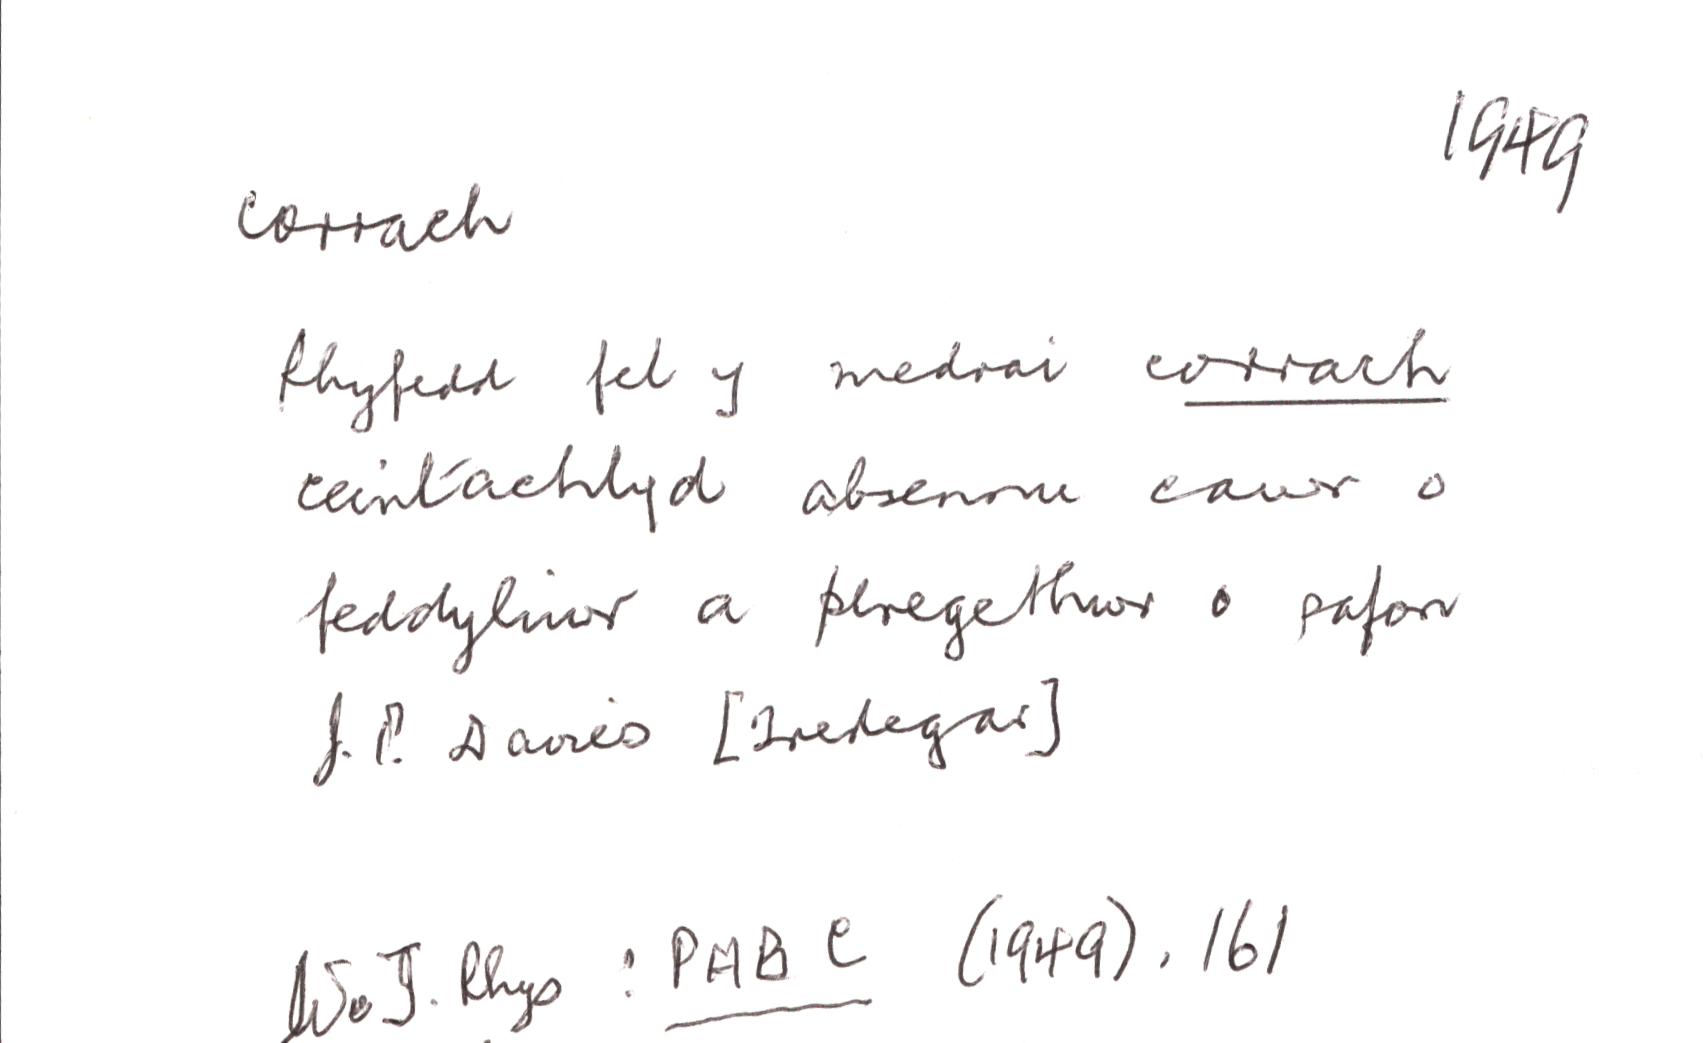 1949
corrach
Rhyfedd fel y medrai corrach
ceintachlyd absennu cawr o
feddyliwr a phregethwr o safon
J. P. Davies [Tredegar]
W. J. Rhys : PHBC (1949). 161